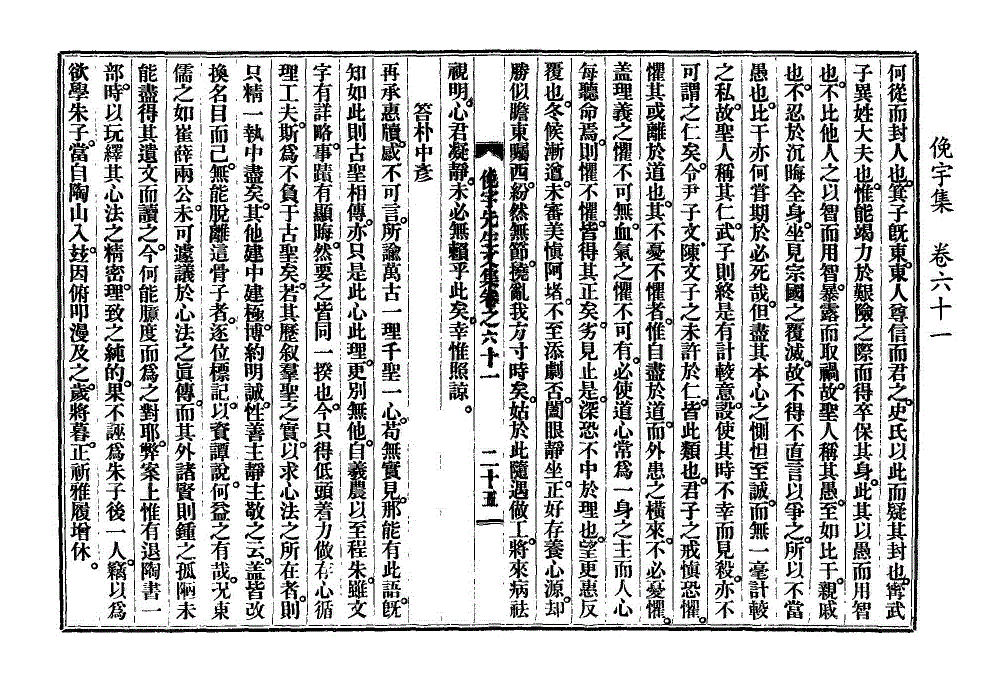 俛宇集 卷六十一
何從而封人也。箕子旣東。東人尊信而君之。史氏以此而疑其封也。甯武
子異姓大夫也。惟能竭力於艱險之際而得卒保其身。此其以愚而用智
也。不比他人之以智而用智。暴露而取禍。故聖人稱其愚。至如比干。親戚
也。不忍於沉晦全身。坐見宗國之覆滅。故不得不直言以爭之。所以不當
愚也。比干亦何嘗期於必死哉。但盡其本心之惻怛至誠。而無一毫計較
之私。故聖人稱其仁。武子則終是有計較意。設使其時不幸而見殺。亦不
可謂之仁矣。令尹子文,陳文子之未許於仁。皆此類也。君子之戒愼恐懼。
懼其或離於道也。其不憂不懼者。惟自盡於道。而外患之橫來。不必憂懼。
盖理義之懼不可無。血氣之懼不可有。必使道心常爲一身之主而人心
每聽命焉。則懼不懼。皆得其正矣。劣見止是。深恐不中於理也。望更惠反
覆也。冬候漸遒。未審美愼阿堵。不至添劇否。闔眼靜坐。正好存養心源。却
勝似瞻東矚西。紛然無節。撓亂我方寸時矣。姑於此隨遇做工。將來病祛
視明。心君凝靜。未必無賴乎此矣。幸惟照諒。
俛宇先生文集卷之六十一 二十五
答朴中彥
再承惠牘。感不可言。所諭萬古一理千聖一心。苟無實見。那能有此語。旣
知如此則古聖相傳。亦只是此心此理。更別無他。自羲農以至程朱。雖文
字有詳略。事蹟有顯晦。然要之皆同一揆也。今只得低頭着力做存心循
理工夫。斯爲不負于古聖矣。若其歷叙羣聖之實。以求心法之所在者。則
只精一執中盡矣。其他建中建極。博約明誠。性善主靜主敬之云。盖皆改
換名目而已。無能脫離這骨子者。逐位標記。以資譚說。何益之有哉。况東
儒之如崔薛兩公。未可遽議於心法之眞傳。而其外諸賢則鍾之孤陋未
能盡得其遺文而讀之。今何能臆度而爲之對耶。弊案上惟有退陶書一
部。時以玩繹其心法之精密。理致之純的。果不誣爲朱子後一人。竊以爲
欲學朱子。當自陶山入玆。因俯叩漫及之。歲將暮。正祈雅履增休。